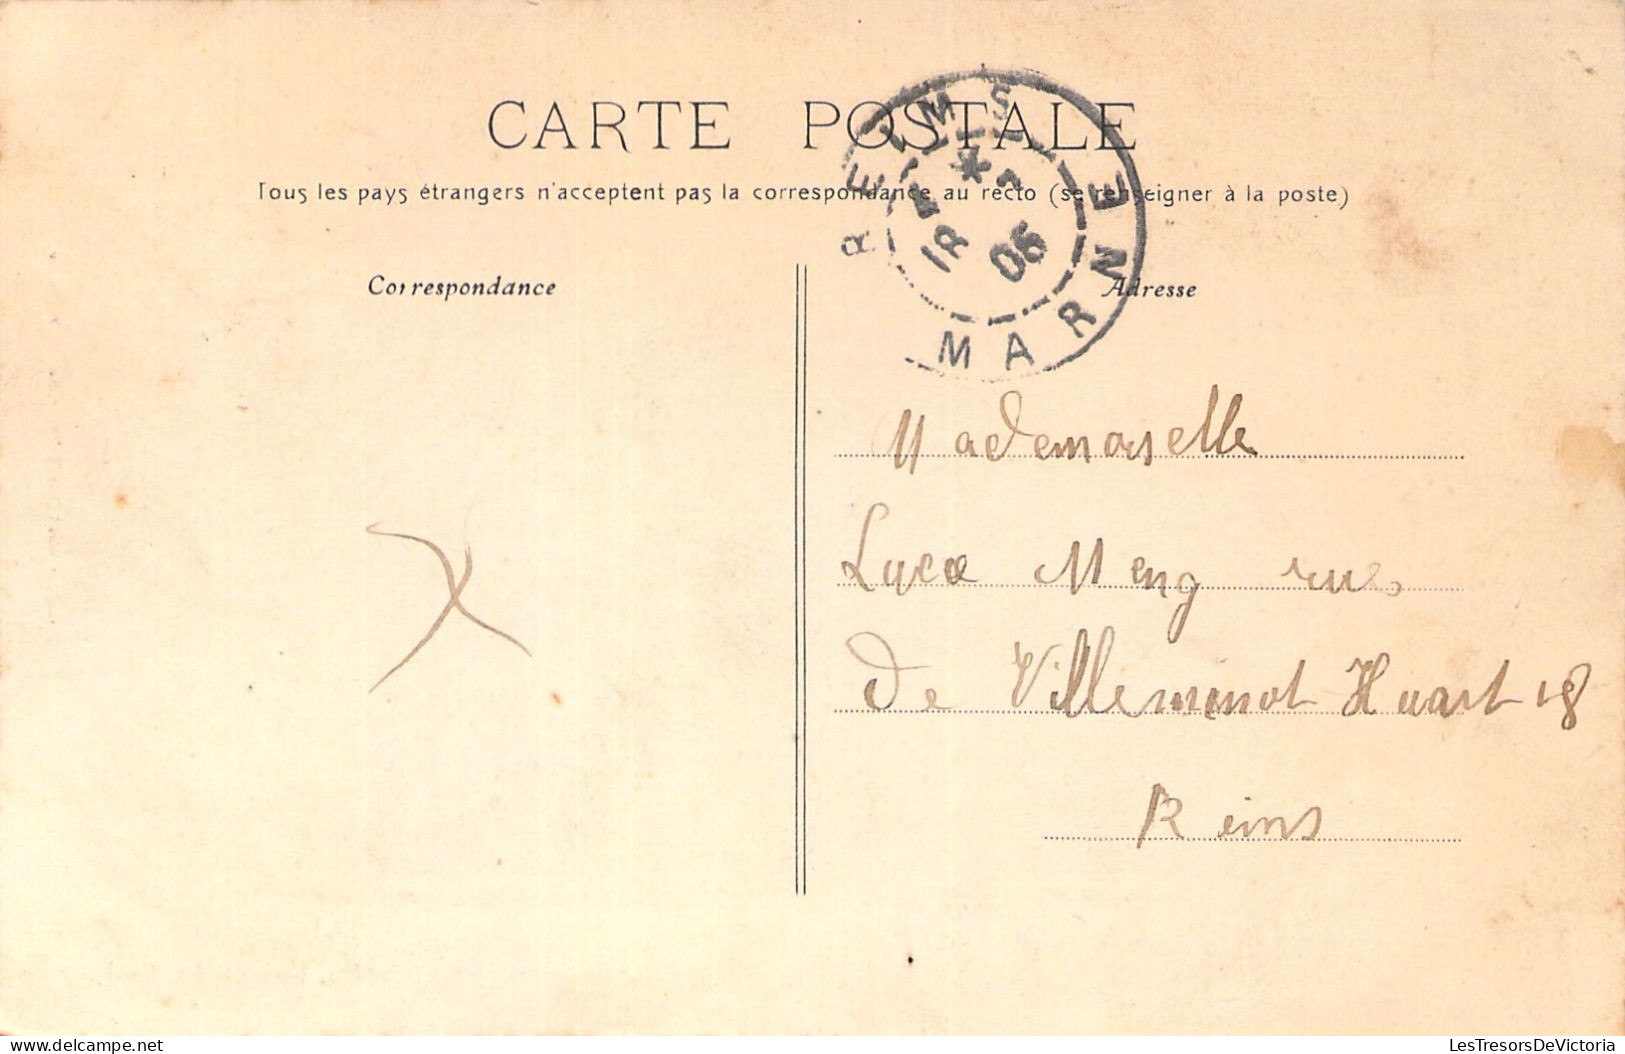 CARTE POSTALE
Tous les pays étrangers n'acceptent pas la correspondance au recto (se renseigner à la poste)
REIMS
MARNE
06
Correspondance
Adresse
Mademoiselle
Meng rue
De Villeminot Huart 18
Reims
LesTresorsDeVictoria